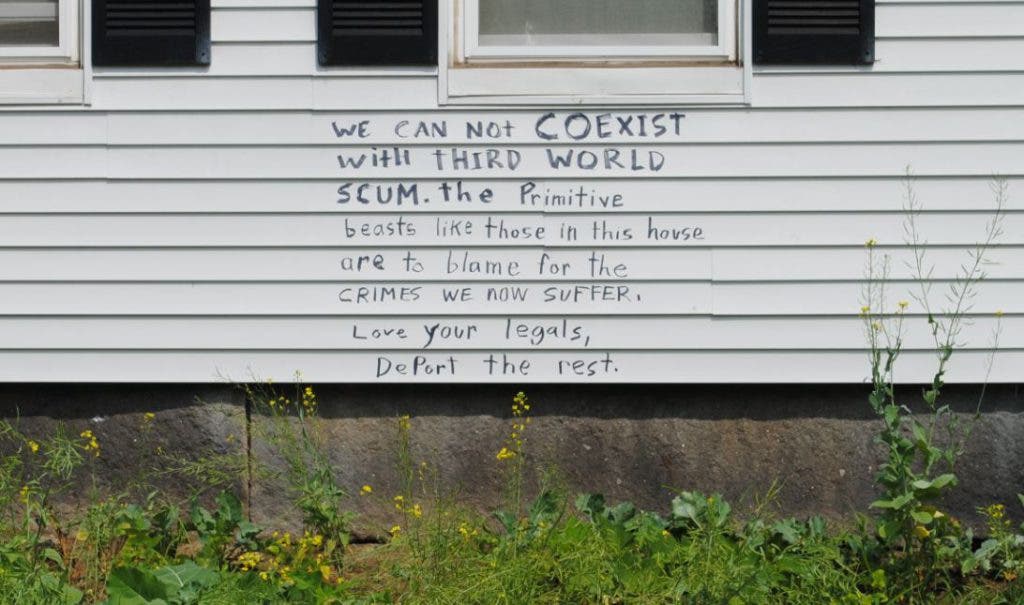 WE CAN NOt COEXIST
with tHIRD WORLD
SCUM. the Primitive
beasts like those in this house
are to blame for the
CRIMES WE NOW SUFFER.
Love your legals,
DePort the rest.